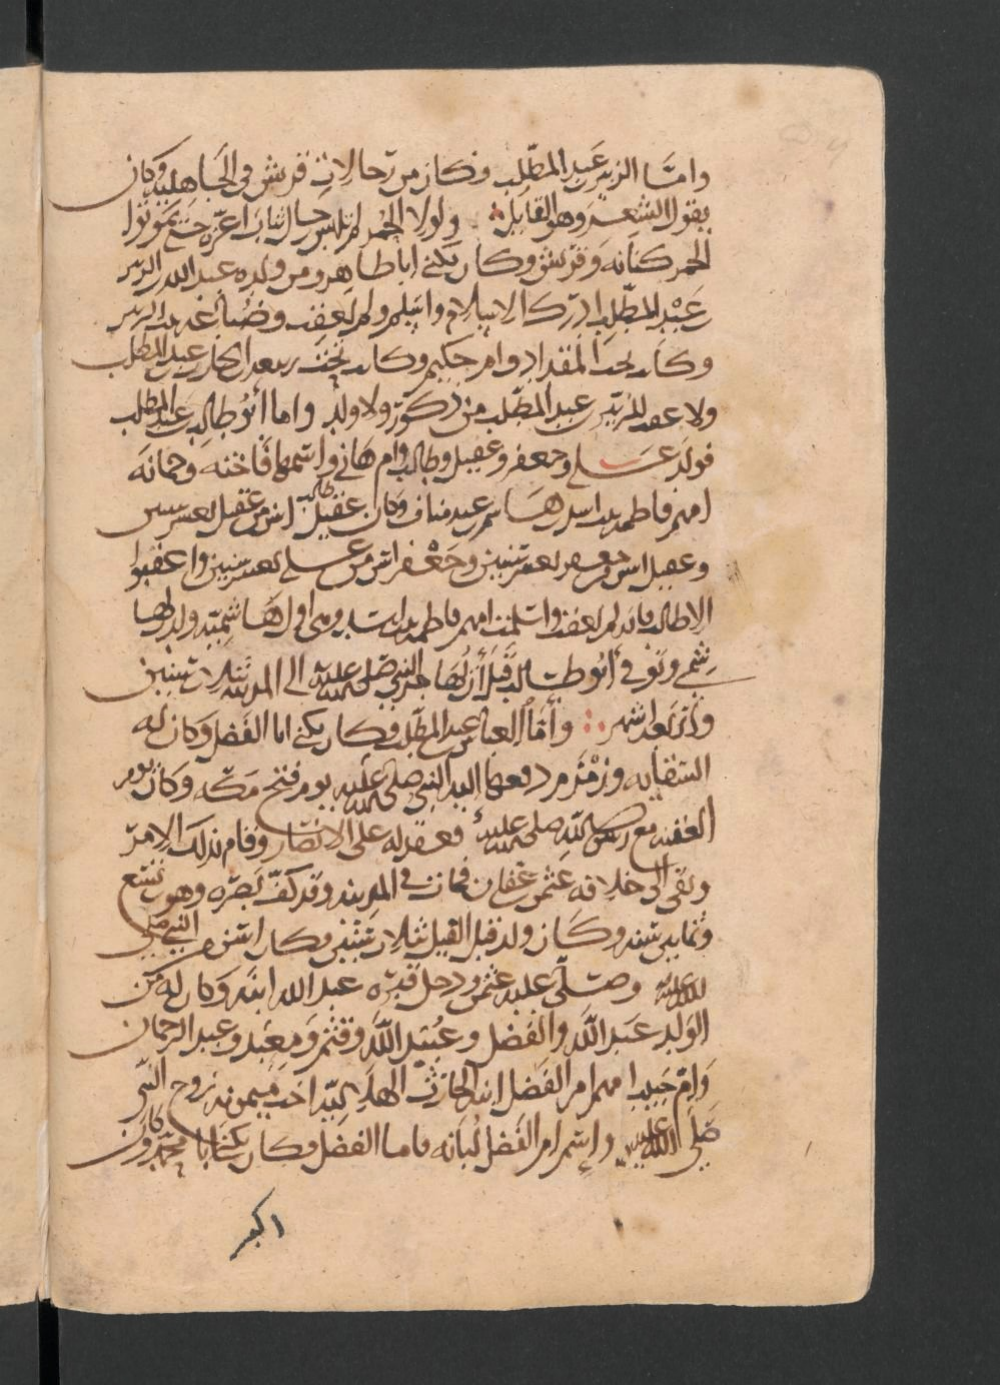 واما الزبير عبد المطلب وكان من رجالات قريش في الجاهلية وكان
يقول الشعر وهو القايل ولولا الحمر لم تلبس رجال ثياب اعزة حتى يموتوا
الحمر كنانه وقريش وكان يكنى ابا طاهر ومن ولده عبد الله الزبير
عبد المطلب ادرك الاسلام واسلم ولم يعقب وضباعة بنت الزبير
وكانت تحت المقداد وام حكيم وكانت تحت ربيعة الحارث عبد المطلب
ولا عقب للزبير عبد المطلب من ذكور ولا ولد واما ابو طالب عبد المطلب
فولد علي وجعفر وعقيل وطالب وام هاني واسمها فاخته وجمانه
امهم فاطمه بنت اسد هاشم عبد مناف وكان طالب اسن من عقيل بعشر سنين
وعقيل اسن من جعفر بعشر سنين وجعفر اسن من علي بعشر سنين واعقبوا
الا طالب فانه لم يعقب واسلمت امهم فاطمه بنت اسد وهي اول هاشميه ولدت لها
شمي وتوفي ابو طالب قبل ان يهاجر النبي صلى الله عليه الى المدينه بثلاث سنين
واربعه اشهر واما العباس عبد المطلب وكان يكنى ابا الفضل وكان له
السقايه وزمزم دفعها اليه النبي صلى الله عليه يوم فتح مكه وكان يوم
العقبه مع رسول الله صلى الله عليه فعقد له على الانصار وقام بذلك الامر
وبقى الى خلافه عثمن عفان فمات في المدينه وقد كف بصره وهو تسع
وثمانين سنه وكان ولد قبل الفيل بثلاث سنين وكان اسن من النبي صلى
الله عليه وصلى عليه عثمن ودخل قبره عبد الله ابنه وكان له من
الولد عبد الله والفضل وعبيد الله وقثم ومعبد وعبد الرحمان
وام حبيب امهم ام الفضل ابنه الحارث الهلاليه اخت ميمونه زوج النبي
صلى الله عليه واسم ام الفضل لبابه فاما الفضل فكان يكنا ابا محمد وكان
اكبر